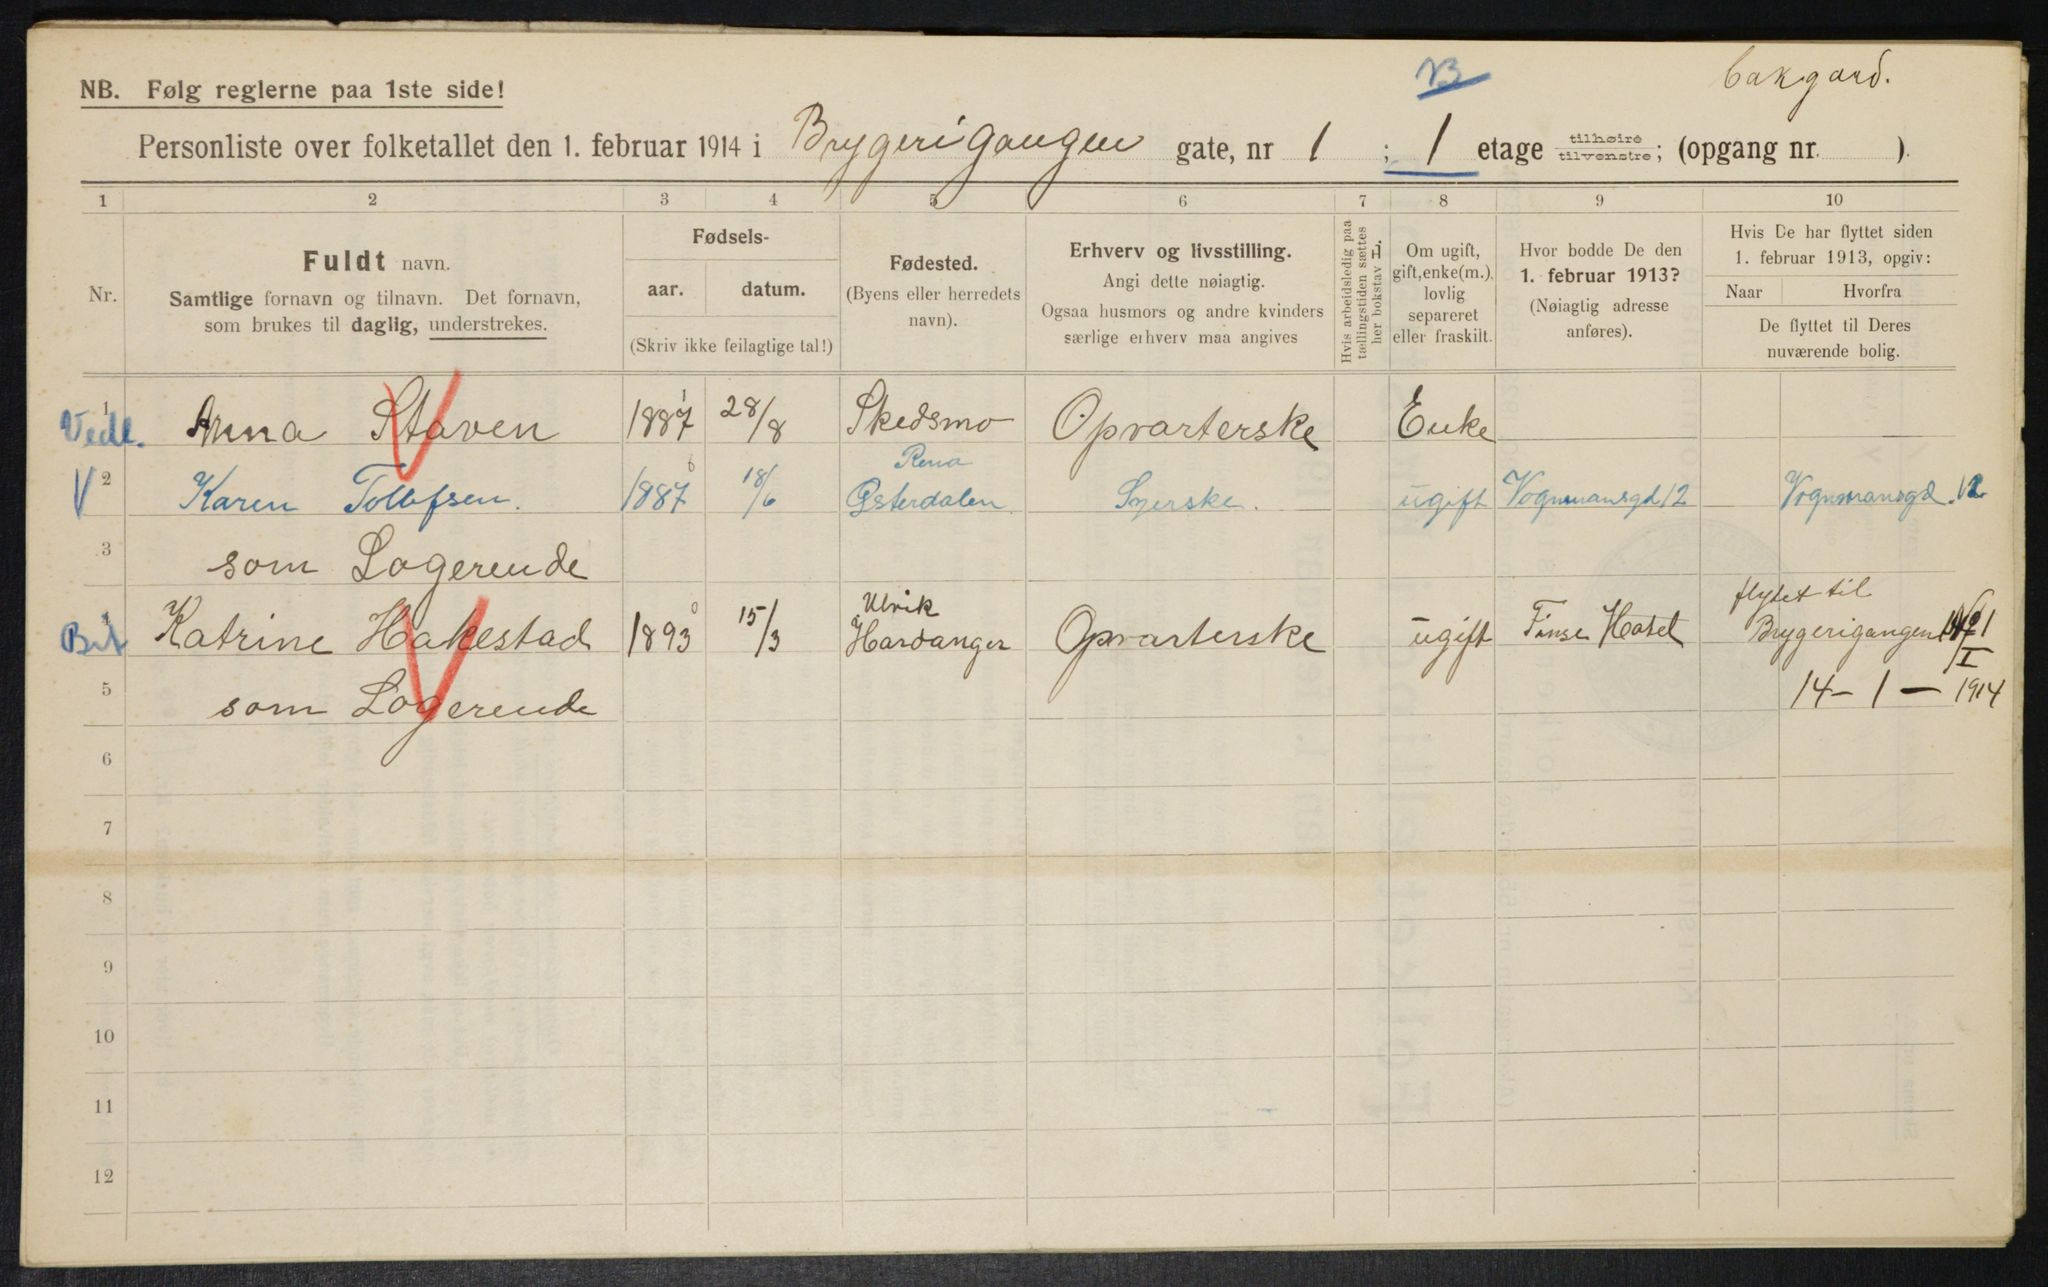 B
bakgard.
NB. Følg reglerne paa 1ste side!
Personliste over folketallet den 1. februar 1914 i Brygerigangen gate, nr 1 ; 1 etage tilhøire tilvenstre; (opgang nr. ).
1 2 3 4 5 6 7 8 9 10
Nr.
Fuldt navn.
Samtlige fornavn og tilnavn. Det fornavn,
som brukes til daglig, understrekes.
Fødsels-
aar. datum.
(Skriv ikke feilagtige tal!)
Fødested.
(Byens eller herredets
navn).
Erhverv og livsstilling.
Angi dette nøiagtig.
Ogsaa husmors og andre kvinders
særlige erhverv maa angives
Hvis arbeidsledig paa
tællingstiden sættes
her bokstav L.
Om ugift,
gift, enke(m.),
lovlig
separeret
eller fraskilt.
Hvor bodde De den
1. februar 1913?
(Nøiagtig adresse
anføres).
Hvis De har flyttet siden
1. februar 1913, opgiv:
Naar Hvorfra
De flyttet til Deres
nuværende bolig.
Vedl. 1 Anna Staven 1887 1 28/8 Skedsmo Opvarterske Enke
V 2 Karen Tollefsen. 1887 0 18/6 Rena Østerdalen. Syerske. ugift Vognmansgd 12 Vognmansgd. 12
3 som Logerende
Katrine Hakestad 1893 0 15/3 Ulvik Hardanger Opvarterske ugift Finse Hotel flytet til Brygerigangen
5 som Logerende 14 - 1 - 1914
6
7
8
9
10
11
12